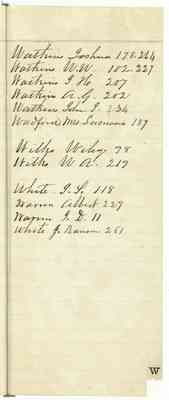 Watkins Joshua 178-264
Watkins W.W. 102-227
Watkins J. H. 207
Watkins A. G. 202
Watkins John T. 234
Wadford Mrs Susanna 187
Wilks Wiley 78
Wilks W A. 219
White I. S. 118
Warren Albert 229
Warren J. D. 11
White J. Ransom 261
W